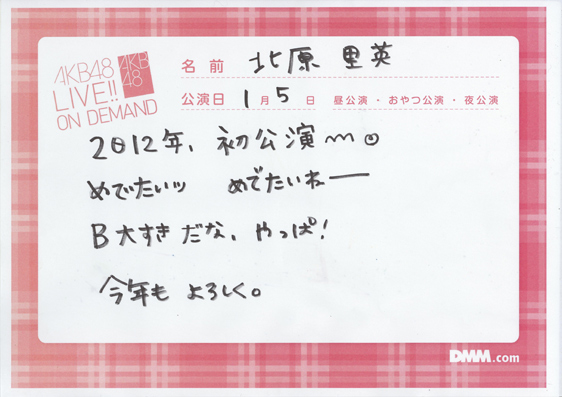 AKB48
LIVE!!
ON DEMAND
AKB
48
名前 北原里英
公演日 1月5日 昼公演・おやつ公演・夜公演
2012年、初公演〜。
めでたいッ めでたいねー
B大すきだな、やっぱ!
今年もよろしく。
DMM.com